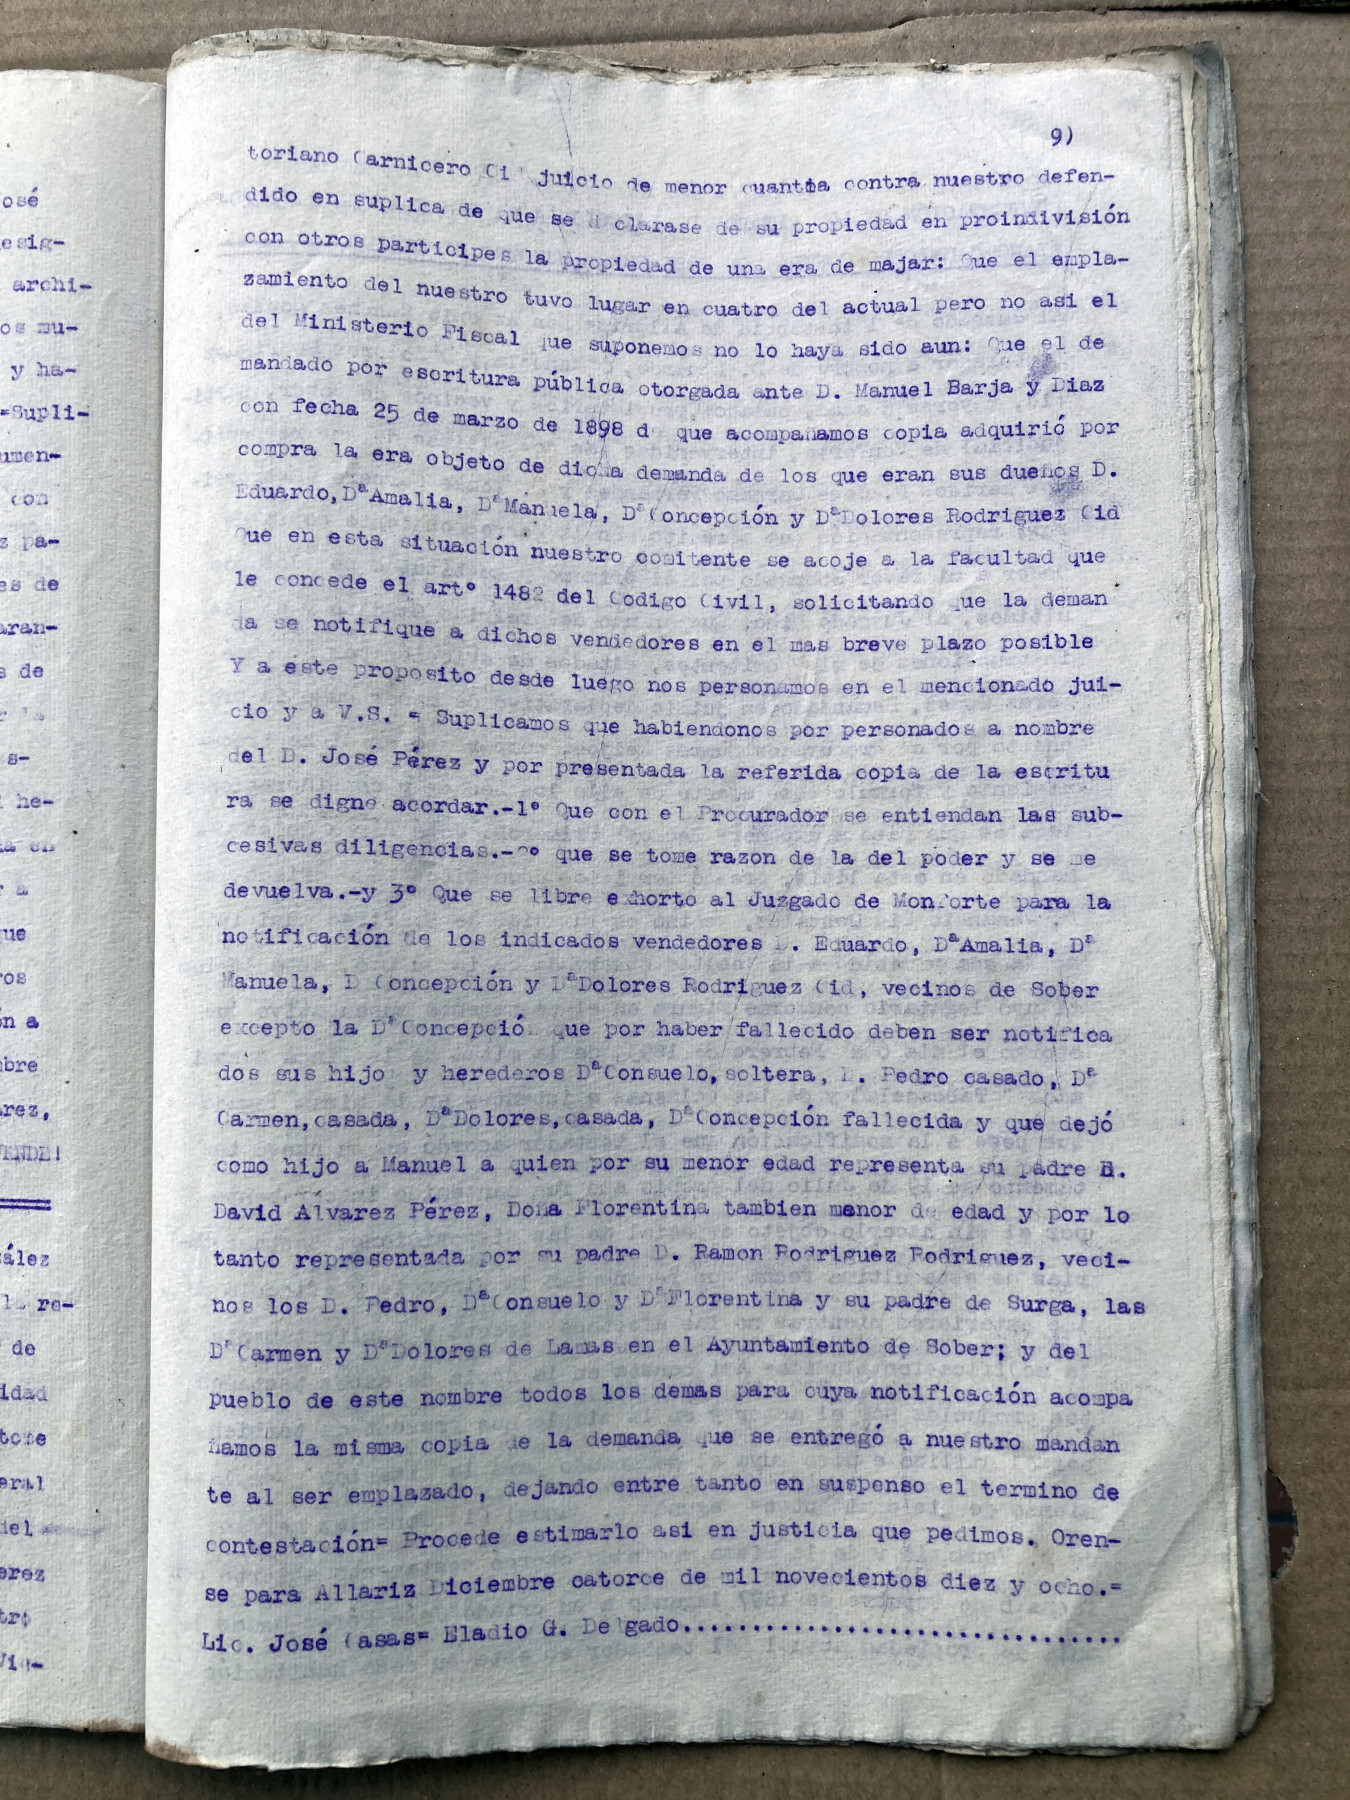 9)
toriano Carnicero Cid juicio de menor cuantia contra nuestro defen-
dido en suplica de que se declarase de su propiedad en proindivisión
con otros participes la propiedad de una era de majar: Que el empla-
zamiento del nuestro tuvo lugar en cuatro del actual pero no asi el
del Ministerio Fiscal que suponemos no lo haya sido aun: Que el de
mandado por escritura pública otorgada ante D. Manuel Barja y Diaz
con fecha 25 de marzo de 1898 de que acompañamos copia adquirió por
compra la era objeto de dicha demanda de los que eran sus dueños D.
Eduardo, DªAmalia, DªManuela, DªConcepción y DªDolores Rodriguez Cid
Que en esta situación nuestro comitente se acoje a la facultad que
le concede el artº 1482 del Codigo Civil, solicitando que la deman
da se notifique a dichos vendedores en el mas breve plazo posible
Y a este proposito desde luego nos personamos en el mencionado jui-
cio y a V.S. = Suplicamos que habiendonos por personados a nombre
del D. José Pérez y por presentada la referida copia de la escritu
ra se digne acordar.-1º Que con el Procurador se entiendan las sub-
cesivas diligencias.-2º que se tome razon de la del poder y se me
devuelva.-y 3º Que se libre exhorto al Juzgado de Monforte para la
notificación de los indicados vendedores D. Eduardo, DªAmalia, Dª
Manuela, D Concepción y DªDolores Rodriguez Cid, vecinos de Sober
excepto la DªConcepción que por haber fallecido deben ser notifica
dos sus hijo y herederos DªConsuelo, soltera, D. Pedro casado, Dª
Carmen, casada, DªDolores, casada, DªConcepción fallecida y que dejó
como hijo a Manuel a quien por su menor edad representa su padre D.
David Alvarez Pérez, Doña Florentina tambien menor de edad y por lo
tanto representada por su padre D. Ramon Rodriguez Rodriguez, veci-
nos los D. Pedro, DªConsuelo y DªFlorentina y su padre de Surga, las
DªCarmen y DªDolores de Lamas en el Ayuntamiento de Sober; y del
pueblo de este nombre todos los demas para cuya notificación acompa
ñamos la misma copia de la demanda que se entregó a nuestro mandan
te al ser emplazado, dejando entre tanto en suspenso el termino de
contestación= Procede estimarlo asi en justicia que pedimos. Oren-
se para Allariz Diciembre catorce de mil novecientos diez y ocho.=
Lic. José Casas= Eladio G. Delgado................................
osé
esig-
archi-
os mu-
y ha-
=Supli-
umen-
con
z pa-
es de
aran-
s de
s-
he-
r a
que
ros
ón a
mbre
arez,
VENDE!
zález
la re-
de
idad
tore
eral
del
erez
Vic-